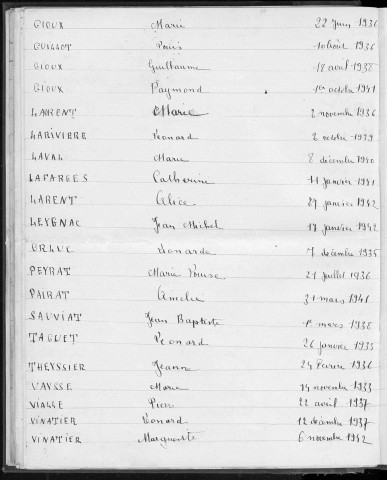 GIOUX Marie 22 Juin 1936
GUILLOT Louis 10 août 1936
GIOUX Guillaume 18 avril 1938
GIOUX Raymond 1er octobre 1941
LAURENT Marie 2 novembre 1936
LARIVIERE Léonard 2 octobre 1939
LAVAL Marie 8 décembre 1940
LAFARGES Catherine 11 janvier 1941
LARENT Alice 27 janvier 1942
LEYGNAC Jean Michel 17 janvier 1942
Léonarde 7 décembre 1935
PEYRAT Marie Louise 21 juillet 1936
PAIRAT Amélie 31 mars 1941
SAUVIAT Jean Baptiste 1er mars 1938
TAGUET Léonard 26 janvier 1935
THEYSSIER Jeanne 24 Février 1936
VAYSSE Marie 14 novembre 1933
VIALLE 22 avril 1937
VINATIER Léonard 12 décembre 1937
VINATIER Marguerite 6 novembre 1942